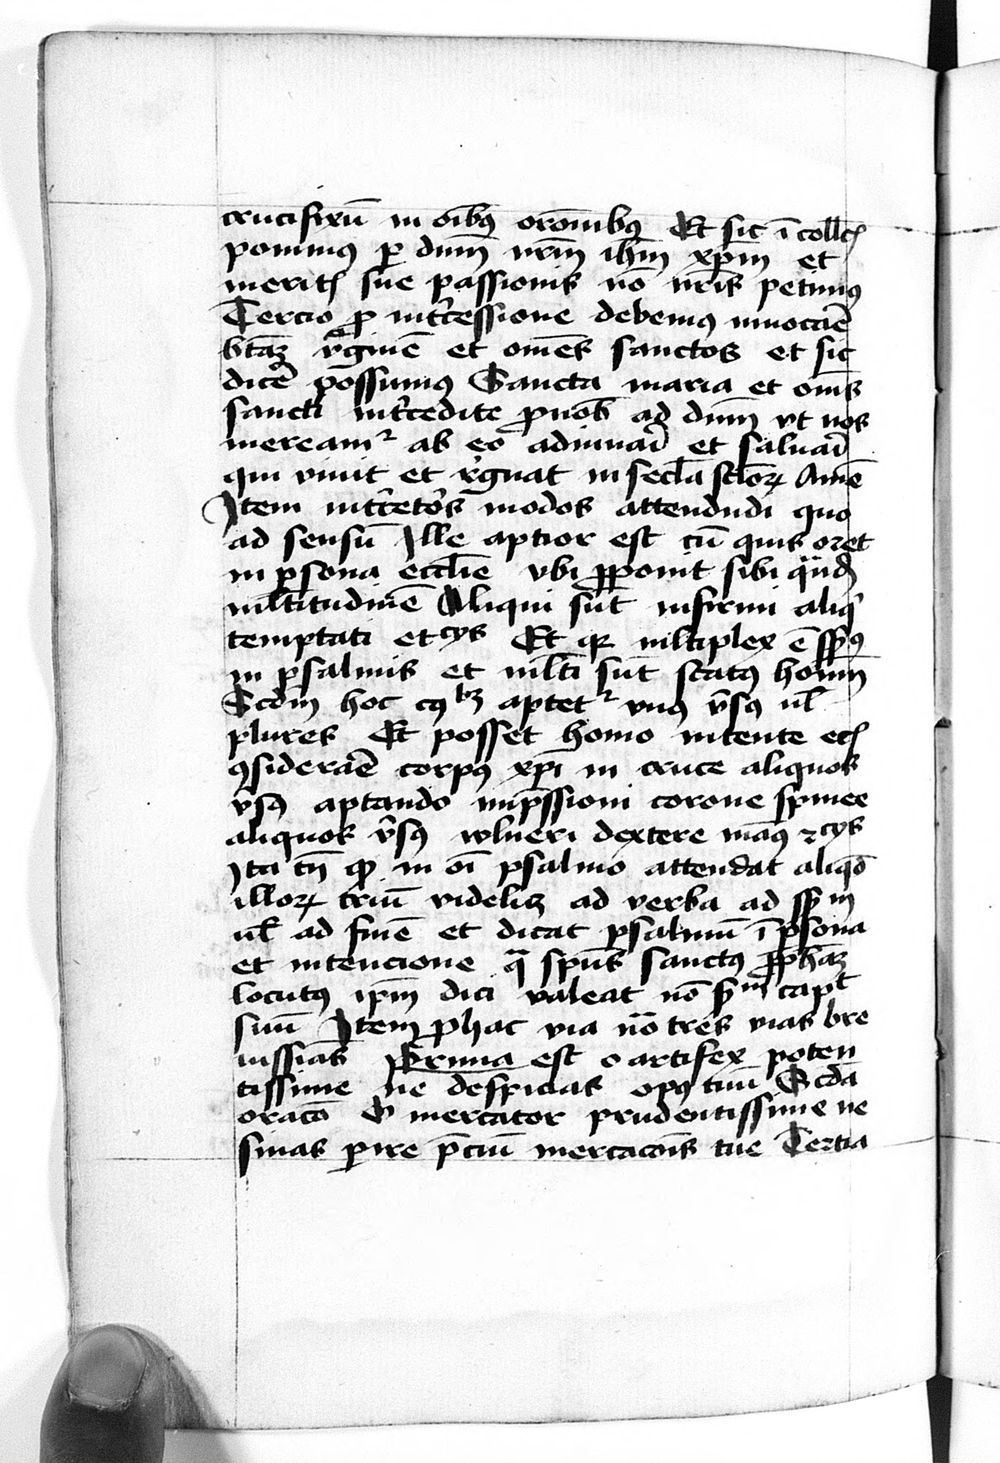 crucifixū in oībꝰ orōnibꝰ Et sic ī coll̄
ponimꝰ ꝑ dnm̄ nrm̄ ihm̄ xpm̄ et
merit̄ sue passionis nō nr̄is petimꝰ
Tercio ꝓ int̄cessione debemꝰ inuocar̄e
btāꝫ v̄gīnē et om̄es sanctos et sic
dicē possumꝰ Sancta maria et om̄s
sancti int̄cedite ꝓ nob̄ ad dnm̄ vt nos
mereamᷣ ab eo adiuuari et saluari
qui viuit et r̄gnat in secl̄a scl̄oꝝ Amē
Item int̄ cet̄os modos attendndi quo
ad sensū Ille aptior est cū quis oret
in ꝑsona eccl̄ie vbi ꝓponit sibi
ml̄titudinē Aliqui sūt infirmi aliq̄
temptati etcys Et qꝛ ml̄tiplex ē
in psalmis et ml̄ti sūt statꝰ homm̄
Scdm̄ hoc aptetᷣ vnꝰ v̄sꝰ ul̄
plures Et posset homo intente ec̄
ꝯsiderar̄e corpꝰ xpī in cruce aliquos
v̄sꝰ aptando imp̄ssioni corone spinee
aliquos v̄sꝰ wlneri dextere manꝰ ⁊cys
Ita tn̄ ꝙ in oī psalmo attendat aliqd̄
illoꝝ triū videlicꝫ ad verba ad
ul̄ ad finē et dicat psalmū ī ꝑsona
et intencione q̄ spūs sanctꝰ ꝓphāꝫ
locutꝰ ip̄m dici valeat nō capt̄
suū Item ꝓ hac via nō tres vias bre
uissias Prima est o artifex poten
tissime ne despicias opꝰ tuū Scda
orac̄o O mercator prudentissime ne
sinas ꝑire p̄ciū mercac̄ois tue Tertia